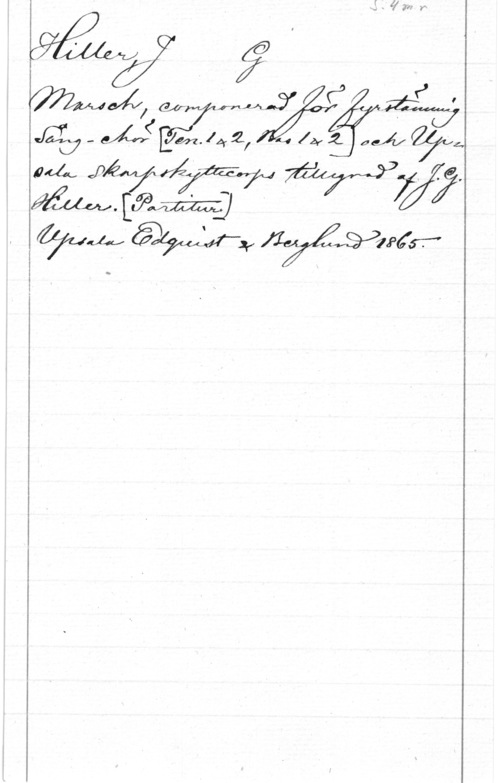 S. 4 m r
Hiller, J G
Marsch, componerad för fyrstämmig
Sång-chör [Ten. 1 & 2, Bas 1 & 2] och Up=
sala skarpskyttecorps tillegnad af J. G.
Hiller. [Partitur]
Upsala Edquist & Berglund 1865.